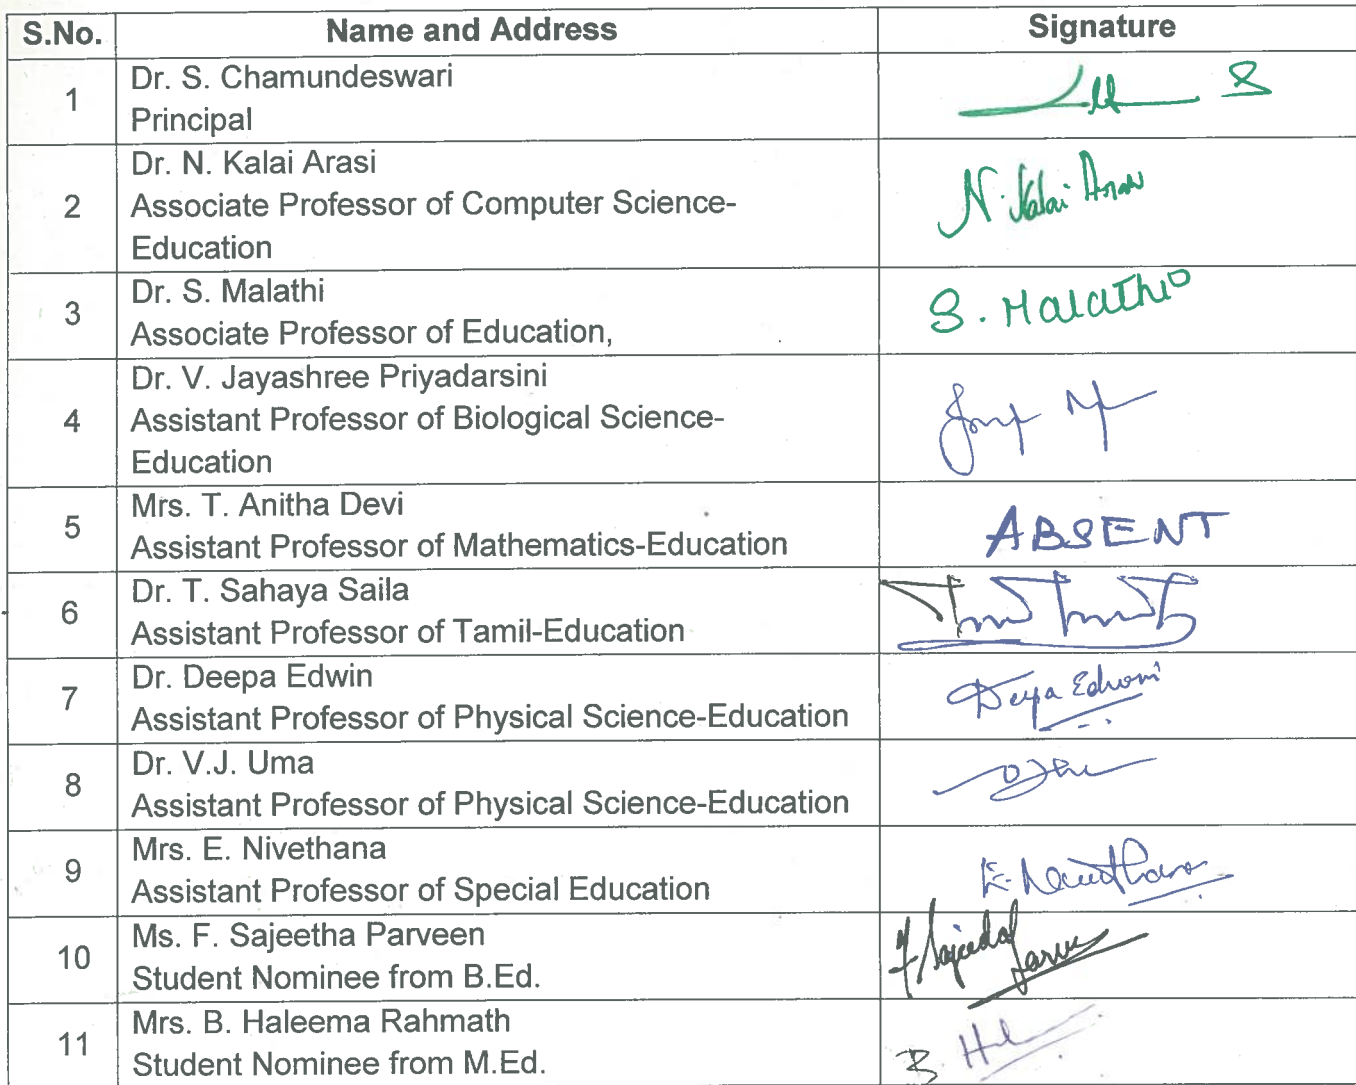 S.No. Name and Address Signature
1 Dr. S. Chamundeswari
Principal
2 Dr. N. Kalai Arasi
Associate Professor of Computer Science-
Education
N. Kalai Arasi
3 Dr. S. Malathi
Associate Professor of Education,
S. Malathi
4 Dr. V. Jayashree Priyadarsini
Assistant Professor of Biological Science-
Education
5 Mrs. T. Anitha Devi
Assistant Professor of Mathematics-Education
ABSENT
6 Dr. T. Sahaya Saila
Assistant Professor of Tamil-Education
7 Dr. Deepa Edwin
Assistant Professor of Physical Science-Education
Deepa Edwin
8 Dr. V.J. Uma
Assistant Professor of Physical Science-Education
9 Mrs. E. Nivethana
Assistant Professor of Special Education
10 Ms. F. Sajeetha Parveen
Student Nominee from B.Ed.
11 Mrs. B. Haleema Rahmath
Student Nominee from M.Ed.
B.